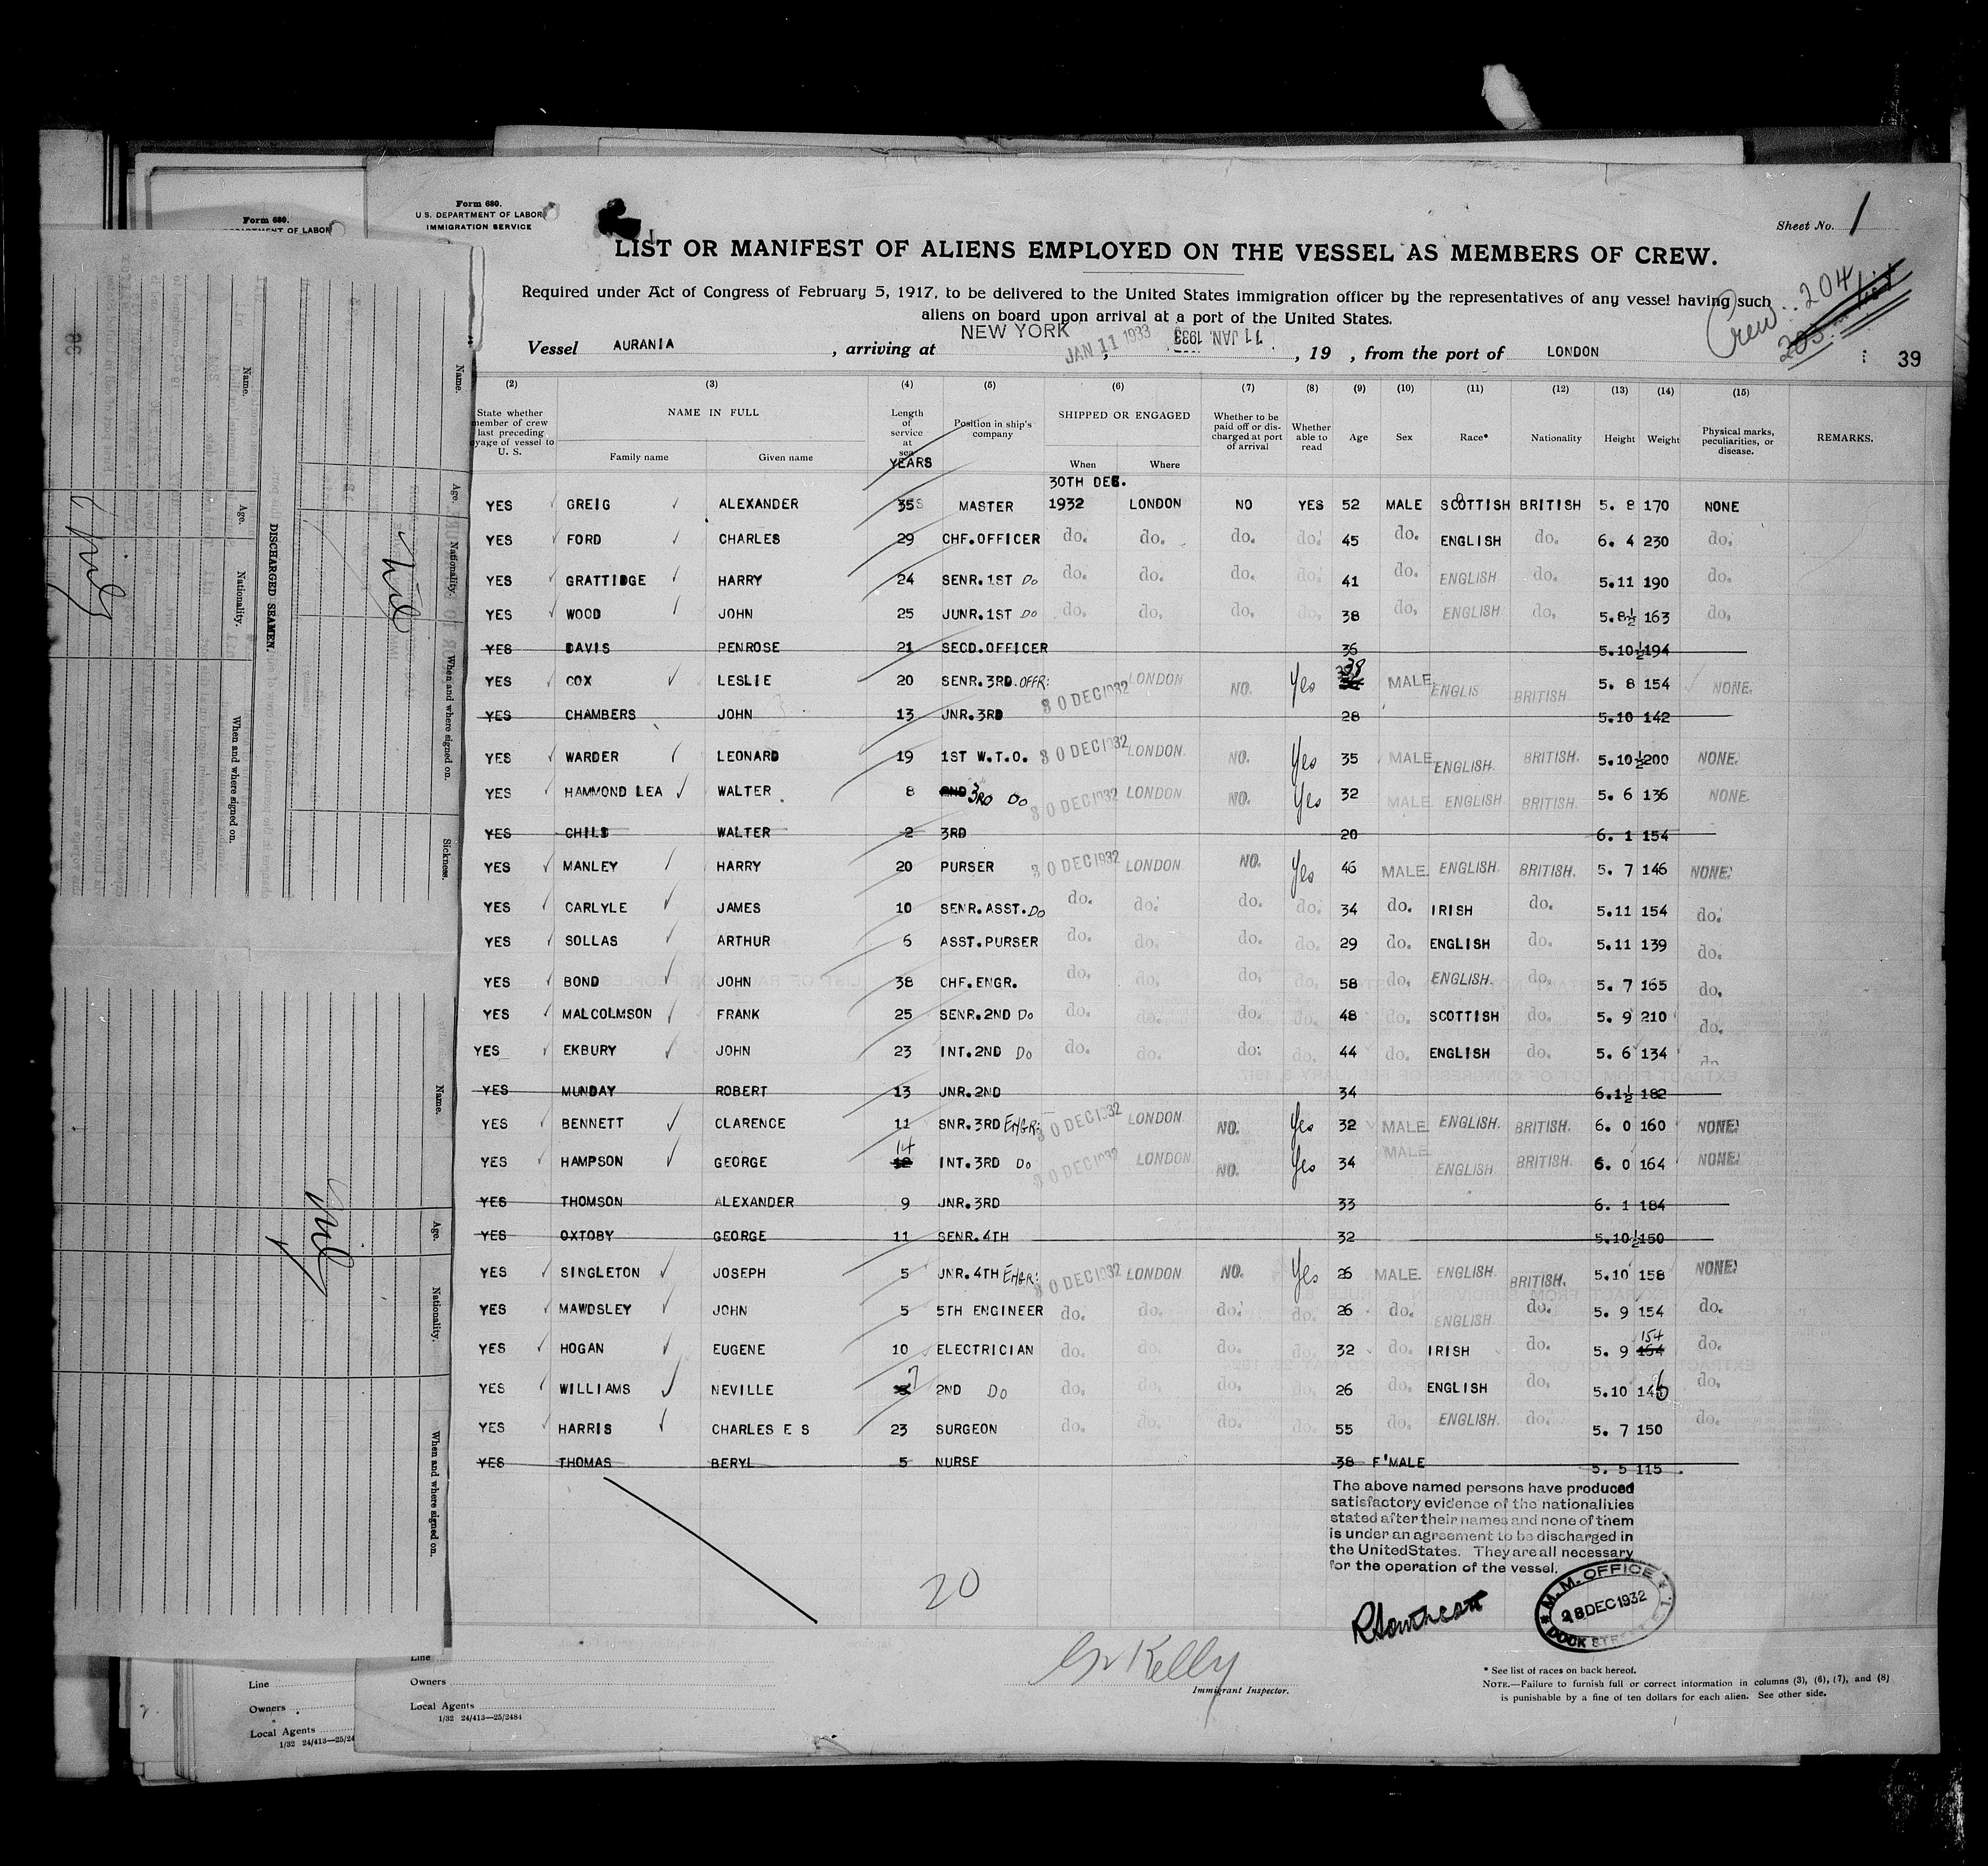 Form 680.
U.S. DEPARTMENT OF LABOR
IMMIGRATION SERVICE
Form 680.
DEPARTMENT OF LABOR
Sheet No. 1
LIST OR MANIFEST OF ALIENS EMPLOYED ON THE VESSEL AS MEMBERS OF CREW.
Required under Act of Congress of February 5, 1917, to be delivered to the United States immigration officer by the representatives of any vessel having such
aliens on board upon arrival at a port of the United States.
Crew 204
Vessel AURANIA, arriving at NEW YORK JAN 11 1933, 11 JAN. 1933, 19 , from the port of LONDON
39
(2) (3) (4) (5) (6) (7) (8) (9) (10) (11) (12) (13) (14) (15)
State whether member of crew last preceding voyage of vessel to U. S. NAME IN FULL Family name Given name Length of service at sea YEARS Position in ship's company SHIPPED OR ENGAGED When Where Whether to be paid off or discharged at port of arrival Whether able to read Age Sex Race* Nationality Height Weight Physical marks, peculiarities, or disease. REMARKS.
30TH DEC.
YES GREIG ALEXANDER 35 MASTER 1932 LONDON NO YES 52 MALE SCOTTISH BRITISH 5. 8 170 NONE
YES FORD CHARLES 29 CHF.OFFICER do. do. do. do. 45 do. ENGLISH do. 6. 4 230 do.
YES GRATTIDGE HARRY 24 SENR.1ST Do do. do. do. do. 41 do. ENGLISH do. 5.11 190 do.
YES WOOD JOHN 25 JUNR.1ST Do do. do. do. do. 38 do. ENGLISH do. 5.8½ 163 do.
YES DAVIS PENROSE 21 SECD.OFFICER 36 5.10½ 194
YES COX LESLIE 20 SENR.3RD.OFFR: 30 DEC 1932 LONDON NO. Yes 38 MALE ENGLIS BRITISH 5. 8 154 NONE.
YES CHAMBERS JOHN 13 JNR.3RD 28 5.10 142
YES WARDER LEONARD 19 1ST W.T.O. 30 DEC 1932 LONDON. NO. Yes 35 MALE ENGLISH. BRITISH. 5.10½ 200 NONE.
YES HAMMOND LEA WALTER 8 2ND 3RD Do 30 DEC 1932 LONDON. NO. Yes 32 MALE ENGLISH. BRITISH. 5. 6 136 NONE.
YES CHILD WALTER 2 3RD 20 6. 1 154
YES MANLEY HARRY 20 PURSER 30 DEC 1932 LONDON. NO. Yes 46 MALE. ENGLISH. BRITISH. 5. 7 146 NONE.
YES CARLYLE JAMES 10 SENR.ASST.Do do. do. do. do. 34 do. IRISH do. 5.11 154 do.
YES SOLLAS ARTHUR 6 ASST.PURSER do. do. do. do. 29 do. ENGLISH do. 5.11 139 do.
YES BOND JOHN 38 CHF.ENGR. do. do. do. do. 58 do. ENGLISH. do. 5. 7 165 do.
YES MALCOLMSON FRANK 25 SENR.2ND Do do. do. do. do. 48 do. SCOTTISH do. 5. 9 210 do.
YES EKBURY JOHN 23 INT.2ND Do do. do. do. do. 44 do. ENGLISH do. 5. 6 134 do
YES MUNDAY ROBERT 13 JNR.2ND 34 6.1½ 182
YES BENNETT CLARENCE 11 SNR.3RD ENGR: 30 DEC 1932 LONDON NO. Yes 32 MALE ENGLISH. BRITISH. 6. 0 160 NONE.
YES HAMPSON GEORGE 14 12 INT.3RD Do 30 DEC 1932 LONDON. NO. Yes 34 MALE ENGLISH. BRITISH. 6. 0 164 NONE.
YES THOMSON ALEXANDER 9 JNR.3RD 33 6. 1 184
YES OXTOBY GEORGE 11 SENR.4TH 32 5.10½ 150
YES SINGLETON JOSEPH 5 JNR.4TH ENGR: 30 DEC 1932 LONDON. NO. Yes 26 MALE. ENGLISH. BRITISH. 5.10 158 NONE.
YES MAWDSLEY JOHN 5 5TH ENGINEER do. do. do. do. 26 do. ENGLISH do. 5. 9 154 do.
YES HOGAN EUGENE 10 ELECTRICIAN do. do. do. do. 32 do. IRISH do. 5. 9 154 do.
YES WILLIAMS NEVILLE 7 2ND Do do. do. do. do. 26 do. ENGLISH do. 5.10 146 do.
YES HARRIS CHARLES E S 23 SURGEON do. do. do. do. 55 do. ENGLISH. do. 5. 7 150 do.
YES THOMAS BERYL 5 NURSE 38 F'MALE 5. 5 115
The above named persons have produced
satisfactory evidence of the nationalities
stated after their names and none of them
is under an agreement to be discharged in
the United States. They are all necessary
for the operation of the vessel.
M.M. OFFICE
28 DEC 1932
DOCK STREET
20
Kelly
Immigrant Inspector.
Line
Owners
Local Agents
1/32 24/413—25/2484
Line
Owners
Local Agents
1/32 24/413—25/24
* See list of races on back hereof.
NOTE.—Failure to furnish full or correct information in columns (3), (6), (7), and (8)
is punishable by a fine of ten dollars for each alien. See other side.
DISCHARGED SEAMEN.
Name. Age. Nationality. When and where signed on. Sickness.
Name. Age. Nationality. When and where signed on.
Name. Age. Nationality. When and where signed on.